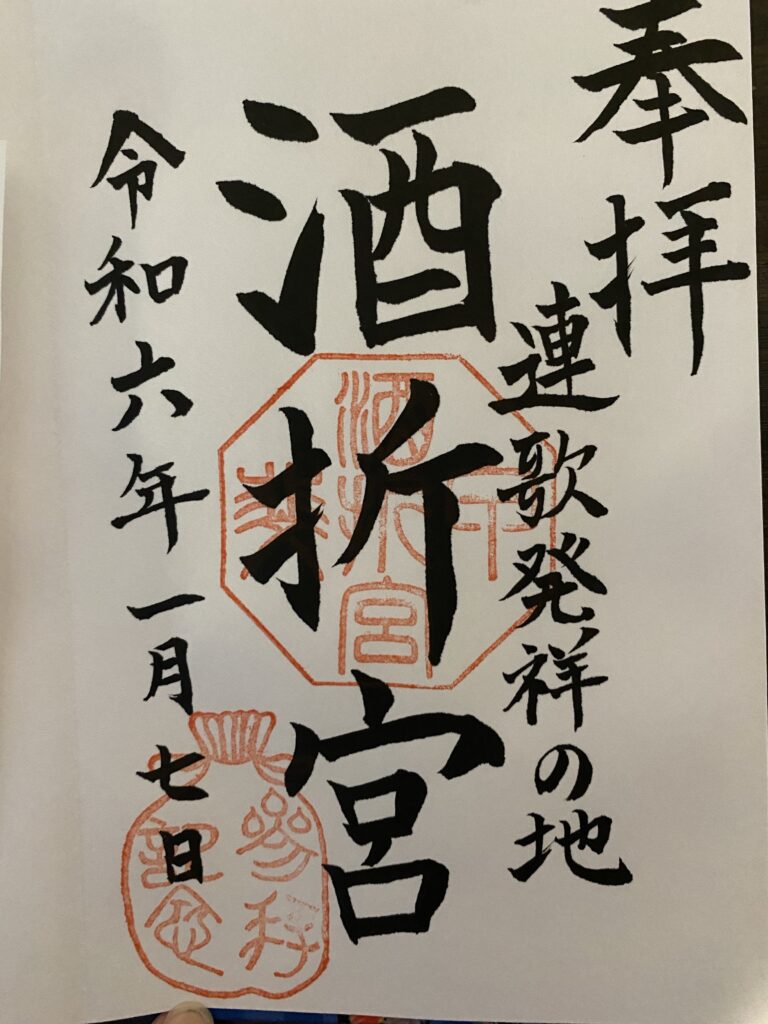 奉拝
連歌発祥の地
酒折宮
令和六年一月七日
酒折宮
參拝
記念